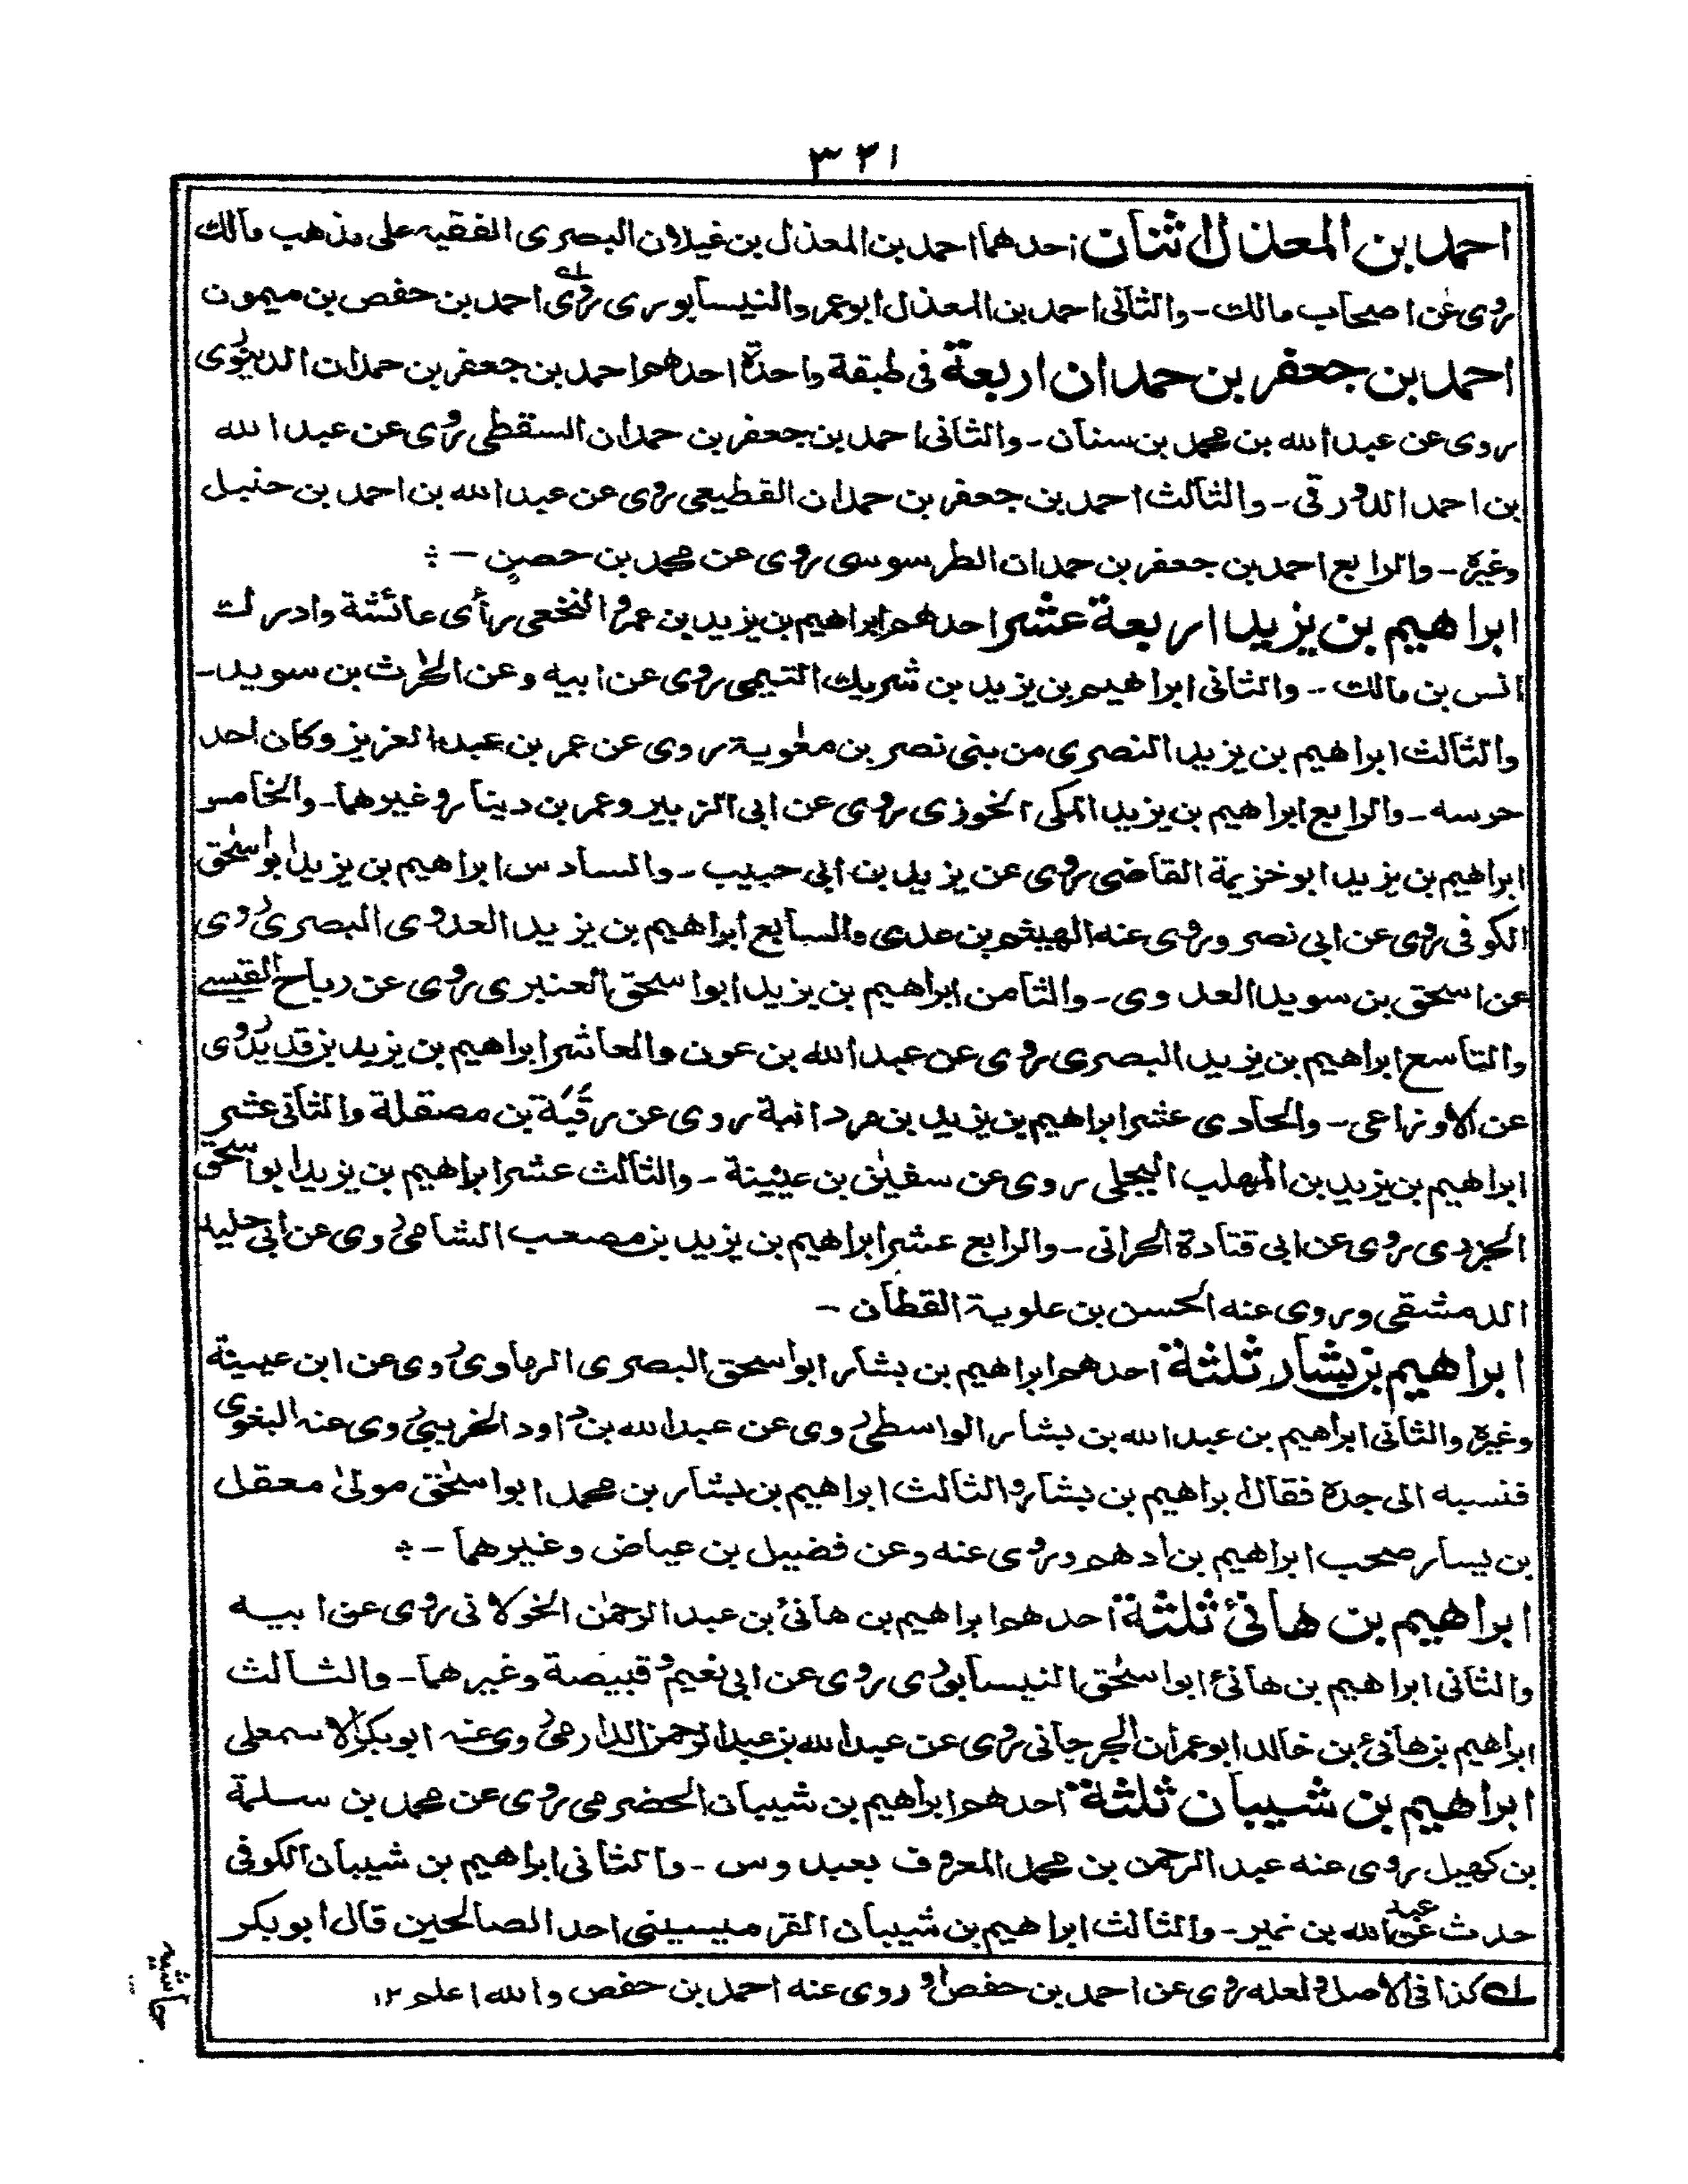 ٣٢١
احمد بن المعذل اثنان احدهما احمد بن المعذل بن غيلان البصرى الفقيه على مذهب مالك
روى عن اصحاب مالك - والثانى احمد بن المعذل ابو عمرو النيسابورى روى احمد بن حفص بن ميمون
احمد بن جعفر بن حمدان اربعة فى طبقة واحدة احدهم احمد بن جعفر بن حمدان الدينورى
روى عن عبد الله بن محمد بن سنان - والثانى احمد بن جعفر بن حمدان السقطى روى عن عبد الله
بن احمد الدورقى - والثالث احمد بن جعفر بن حمدان القطيعى روى عن عبد الله بن احمد بن حنبل
وغيره - والرابع احمد بن جعفر بن حمدان الطرسوسى روى عن محمد بن حصين -
ابراهيم بن يزيد اربعة عشر احدهم ابراهيم بن يزيد بن عمرو النخعى رأى عائشة وادرك
انس بن مالك - والثانى ابراهيم بن يزيد بن شريك التيمى روى عن ابيه وعن الحٰرث بن سويد -
والثالث ابراهيم بن يزيد النصرى من بنى نصر بن معٰوية روى عن عمر بن عبد العزيز وكان احد
حرسه - والرابع ابراهيم بن يزيد المكى الخوزى روى عن ابى الزبير وعمر بن دينار وغيرهما - والخامس
ابراهيم بن يزيد ابو خزيمة القاضى روى عن يزيد بن ابى حبيب - والسادس ابراهيم بن يزيد ابو اسحٰق
الكوفى روى عن ابى نصر وروى عنه الهيثم بن عدى والسابع ابراهيم بن يزيد العدوى البصرى روى
عن اسحق بن سويد العدوى - والثامن ابراهيم بن يزيد ابو اسحق العنبرى روى عن رباح القيسے
والتاسع ابراهيم بن يزيد البصرى روى عن عبد الله بن عون والعاشر ابراهيم بن يزيد بن قديد روى
عن الاوزاعى - والحادى عشر ابراهيم بن يزيد بن مردانبة روى عن رقبة بن مصقلة والثانى عشر
ابراهيم بن يزيد بن المهلب البجلى روى عن سفيٰن بن عيينة - والثالث عشر ابراهيم بن يزيد ابو اسحق
الجزرى روى عن ابى قتادة الحرانى - والرابع عشر ابراهيم بن يزيد بن مصعب الشامى روى عن ابى خليد
الدمشقى وروى عنه الحسن بن علوية القطان -
ابراهيم بن بشار ثلثة احدهم ابراهيم بن بشار ابو اسحق البصرى الرمادى روى عن ابن عيينة
وغيره والثانى ابراهيم بن عبد الله بن بشار الواسطى روى عن عبد الله بن داود الخريبى روى عنه البغوى
فنسبه الى جده فقال ابراهيم بن بشار والثالث ابراهيم بن بشار بن محمد ابو اسحٰق مولىٰ معقل
بن يسار صحب ابراهيم بن ادهم وروى عنه وعن فضيل بن عياض وغيرهما -
ابراهيم بن هانئ ثلثة احدهم ابراهيم بن هانئ بن عبد الرحمٰن الخولانى روى عن ابيه
والثانى ابراهيم بن هانئ ابو اسحٰق النيسابورى روى عن ابى نعيم وقبيصة وغيرهما - والثالث
ابراهيم بن هانئ بن خالد ابو عمران الجرجانى روى عن عبد الله بن عبد الرحمن الدارمى روى عنه ابو بكر الاسمعلى
ابراهيم بن شيبان ثلثة احدهم ابراهيم بن شيبان الحضرمى روى عن محمد بن سلمة
بن كهيل روى عنه عبد الرحمن بن محمد المعروف بعبدوس - والثانى ابراهيم بن شيبان الكوفى
حدث عن عبد الله بن نمير - والثالث ابراهيم بن شيبان القرميسينى احد الصالحين قال ابو بكر
لے كذا فى الاصل ولعله روى عن احمد بن حفص او روى عنه احمد بن حفص والله اعلم ١٢
حاشيه